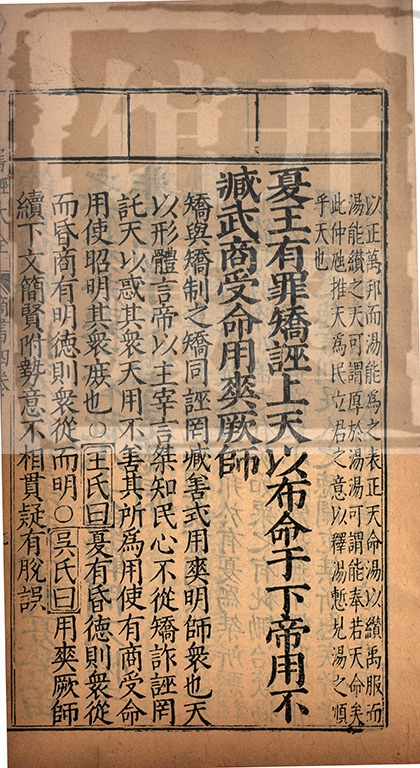 以正萬邦而湯能為之表正天命湯以纘禹服而
湯能纘之天可謂厚於湯湯可謂能奉若天命矣
此仲虺推天為民立君之意以釋湯慙見湯之順
乎天也
夏王有罪矯誣上天以布命于下帝用不
臧式商受命用爽厥師
矯與矯制之矯同誣罔臧善式用爽明師衆也天
以形體言帝以主宰言桀知民心不從矯詐誣罔
託天以惑其衆天用不善其所為用使有商受命
用使昭明其衆庶也○王氏曰夏有昏德則衆從
而昏商有明德則衆從而明○吳氏曰用爽厥師
續下文簡賢附勢意不相貫疑有脫誤